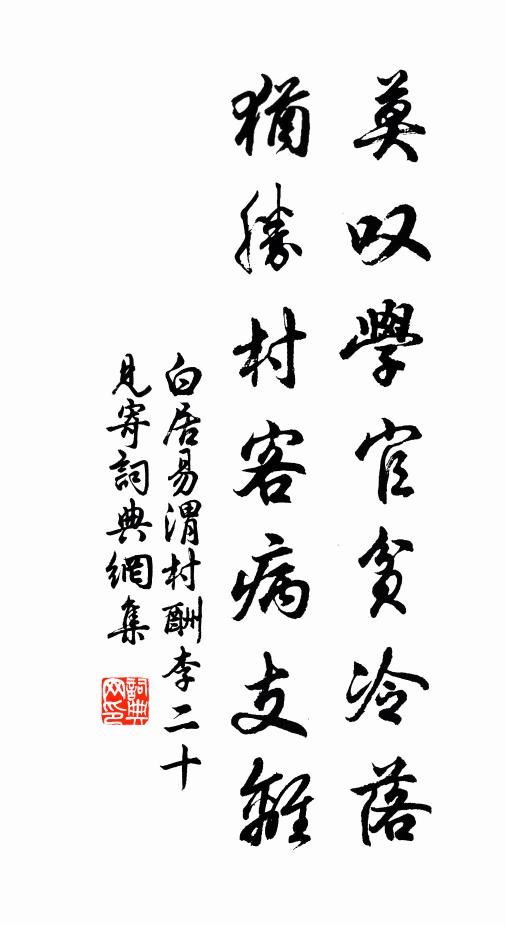 莫叹學官貧冷落
猶勝村客病支離
白居易渭村酬李二十
見寄詞典網集
詞典網印